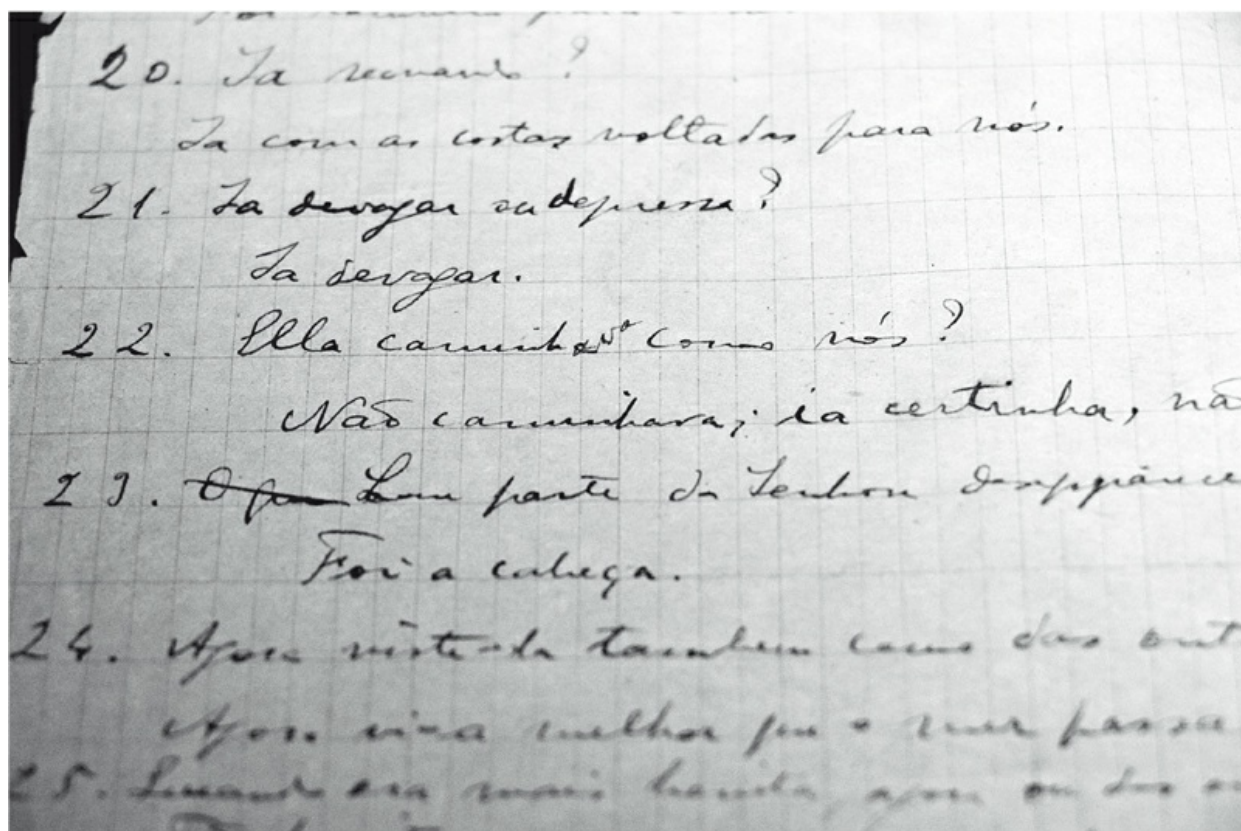 20. Ia recuando?
Ia com as costas voltadas para nós.
21. Ia devagar ou depressa?
Ia devagar.
22. Ella caminhava como nós?
Não caminhava; ia certinha, nã
23. Que parte da Senhora desapparece
Foi a cabeça.
24. Agora viste-la tambem como das out
Agora vi-a melhor que o mez passa
25. Quando era mais bonita, agora ou das ou